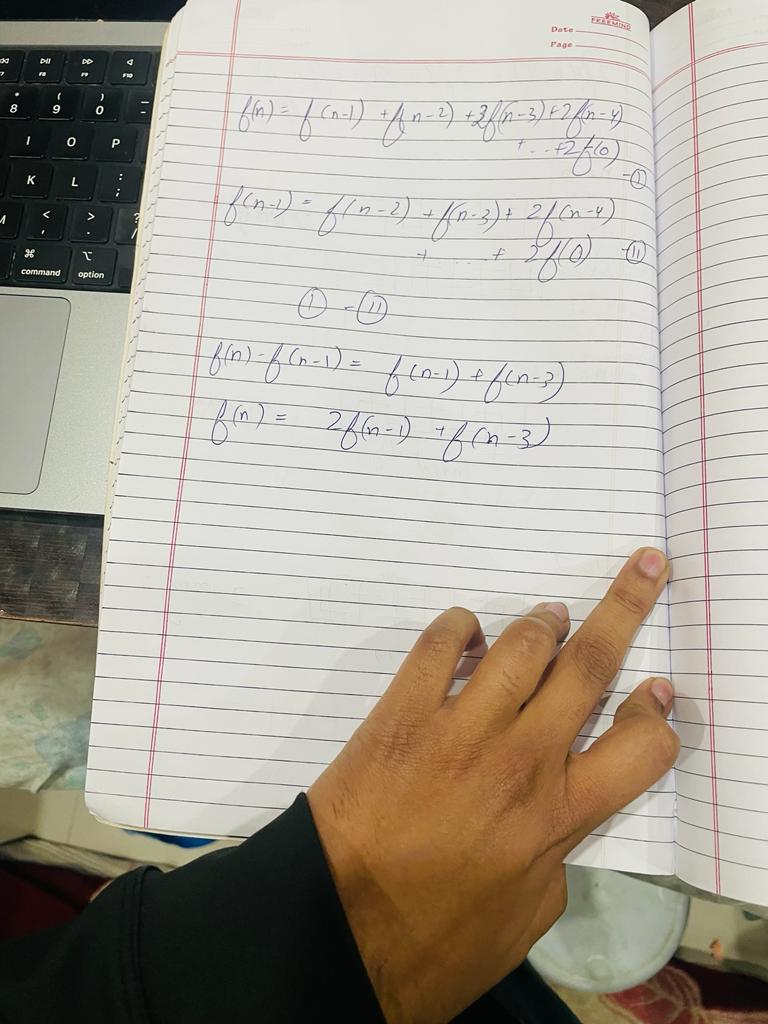 FREEMIND
Date
Page
f(n) = f(n-1) + f(n-2) + 2f(n-3) + 2f(n-4)
+ . . + 2f(0)
- ①
f(n-1) = f(n-2) + f(n-3) + 2f(n-4)
+ . . . . + 2f(0) - ⑪
① - ⑪
f(n) - f(n-1) = f(n-1) + f(n-3)
f(n) = 2f(n-1) + f(n-3)
F8
F9
F10
*
8
(
9
)
0
-
I
O
P
K
L
:
;
M
<
,
>
.
?
/
⌘
command
⌥
option